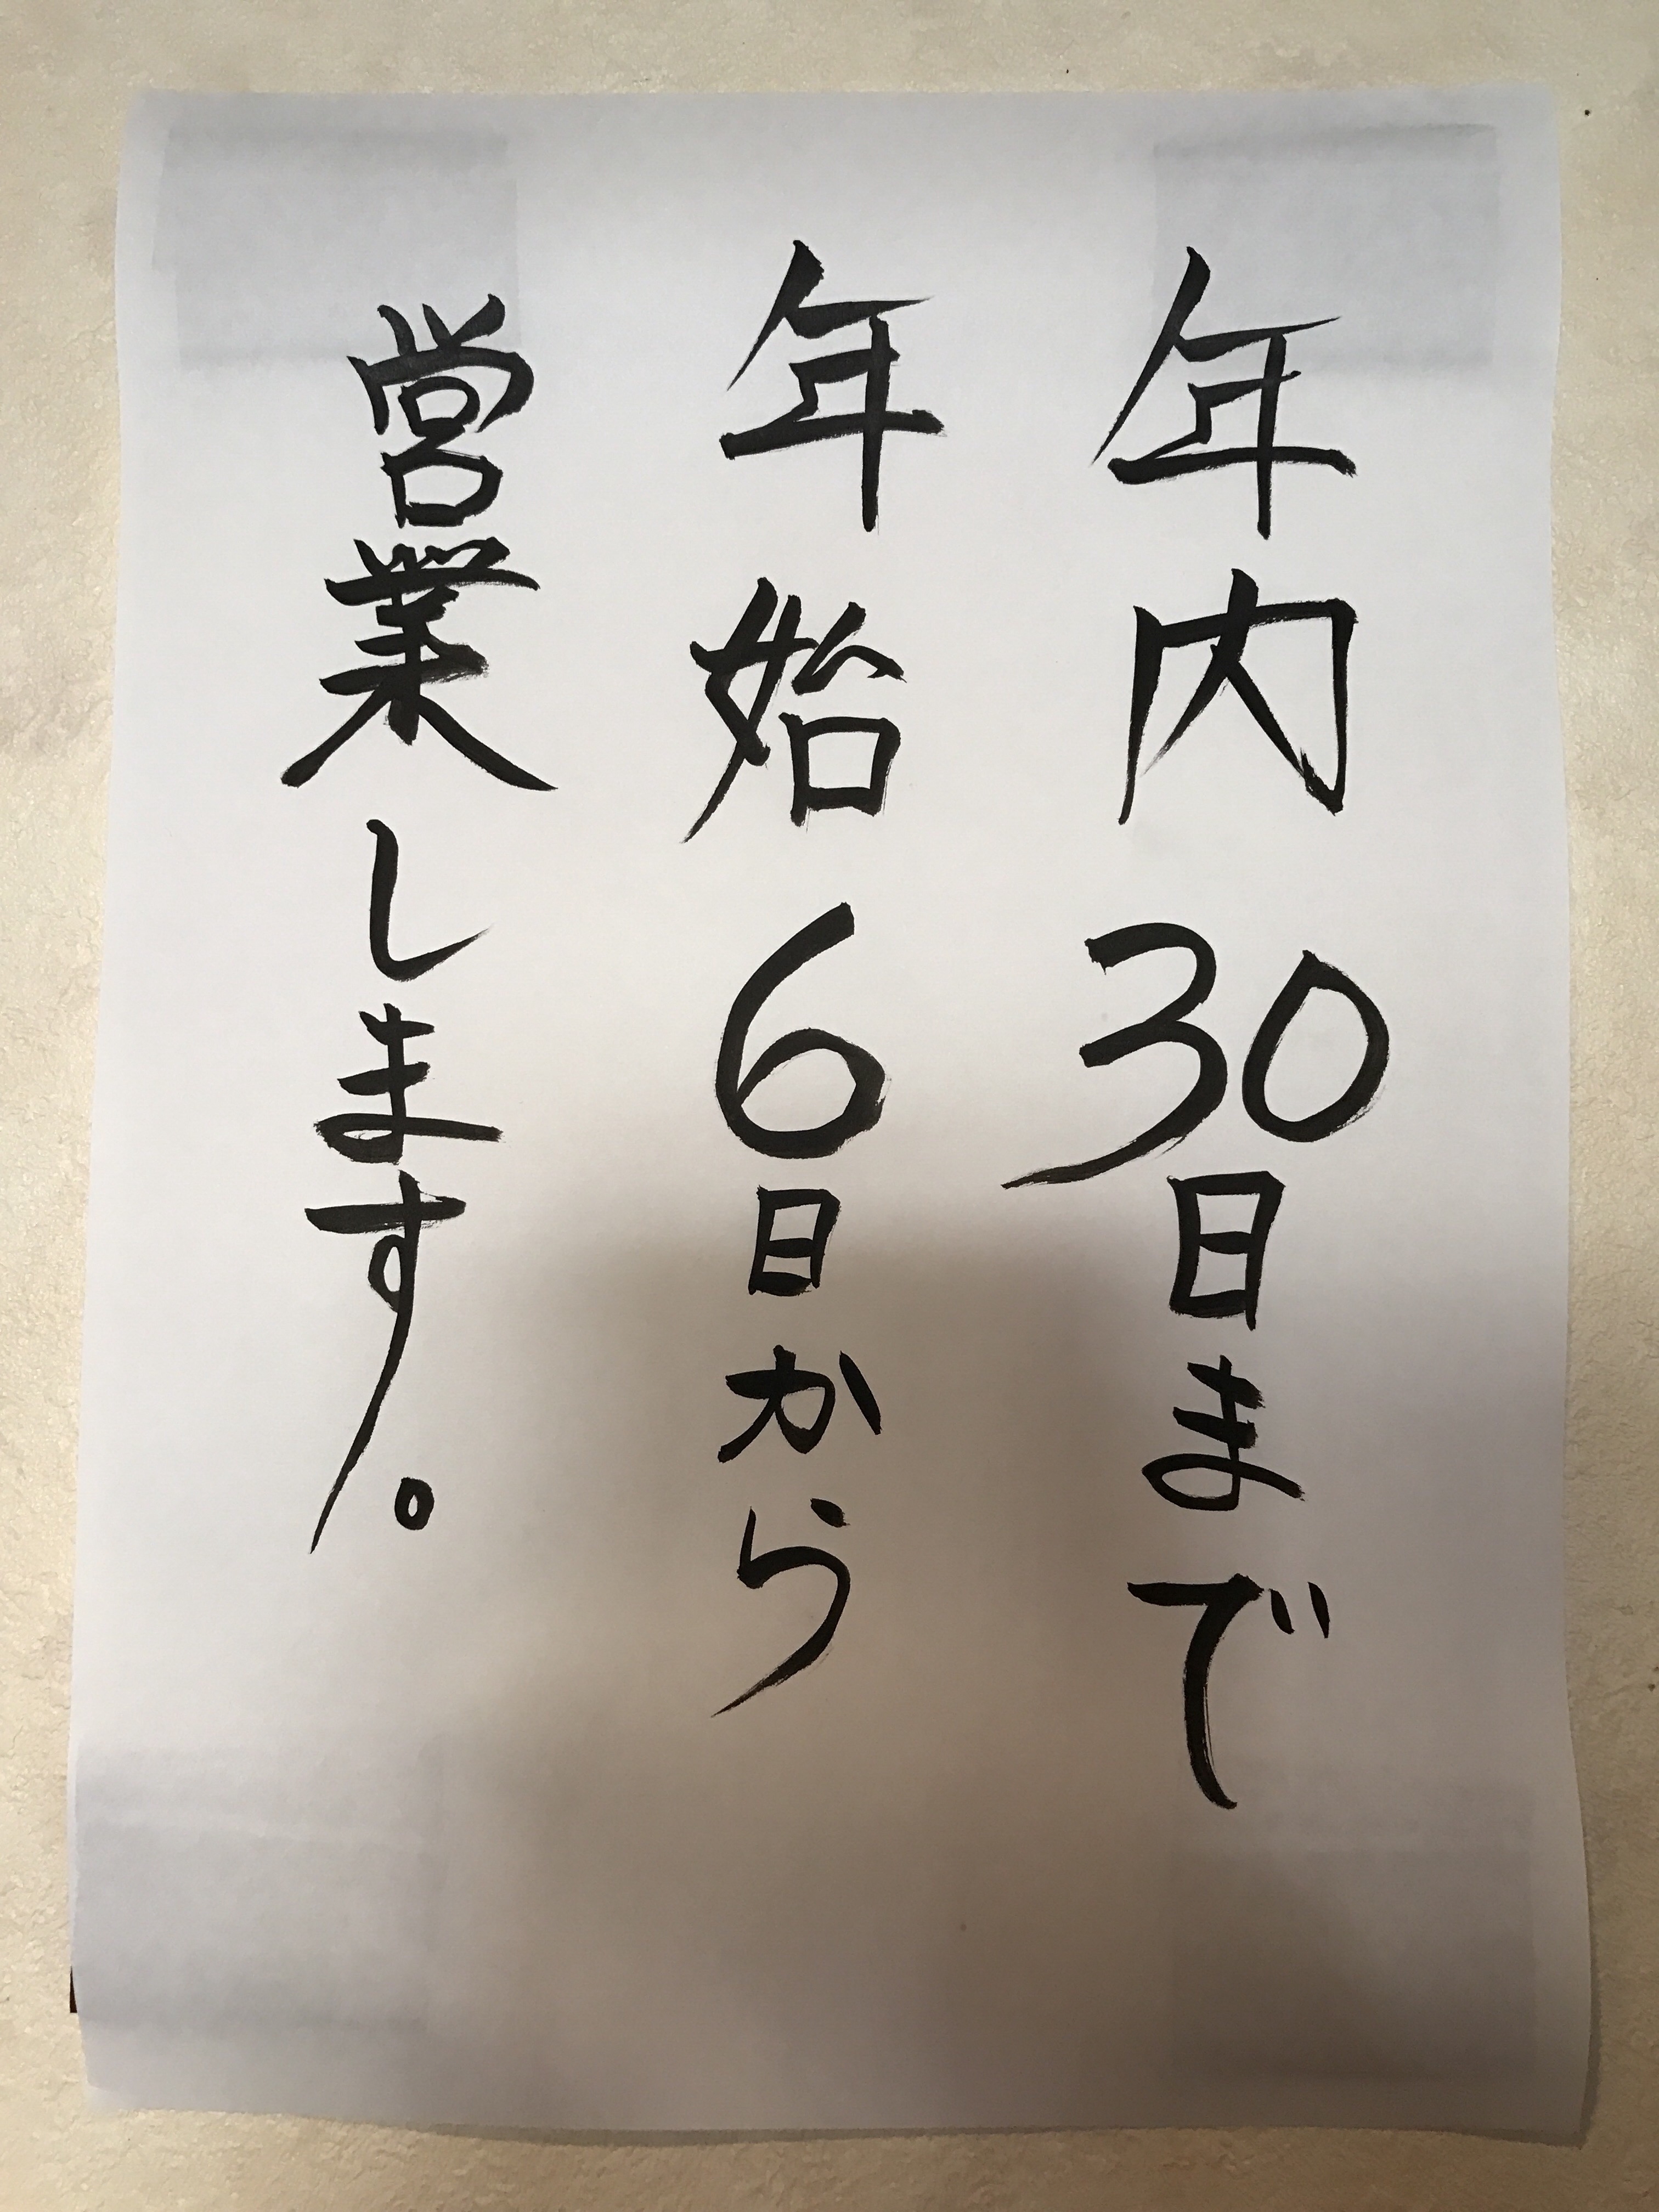 年内30日まで
年始6日から
営業します。